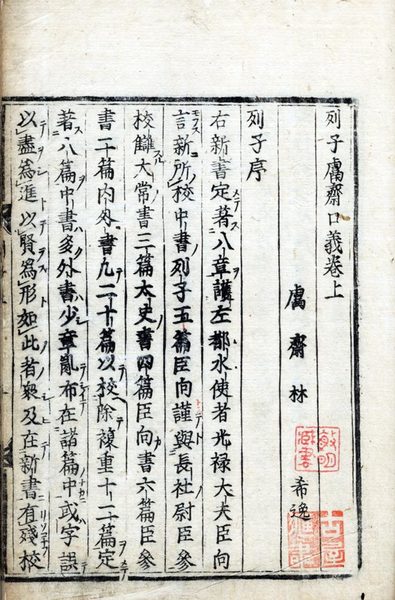 列子鬳齋口義卷上
鬳齋林希逸
列子序
右新書定著八章護左都水使者光禄大夫臣向
言新所校中書列子五篇臣向謹與長社尉臣參
校讎大常書三篇太史書四篇臣向書六篇臣參
書二十篇内外書凡二十篇以校除複重十二篇定
著八篇中書多外書少章亂布在諸篇中或字誤
以盡為進以賢為形如此者衆及在新書有殘校